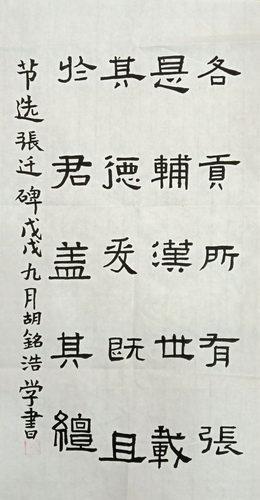 各貢所有張
是輔漢世載
其德爰既且
於君盖其繵
节选張迁碑戊戌九月胡銘浩学書